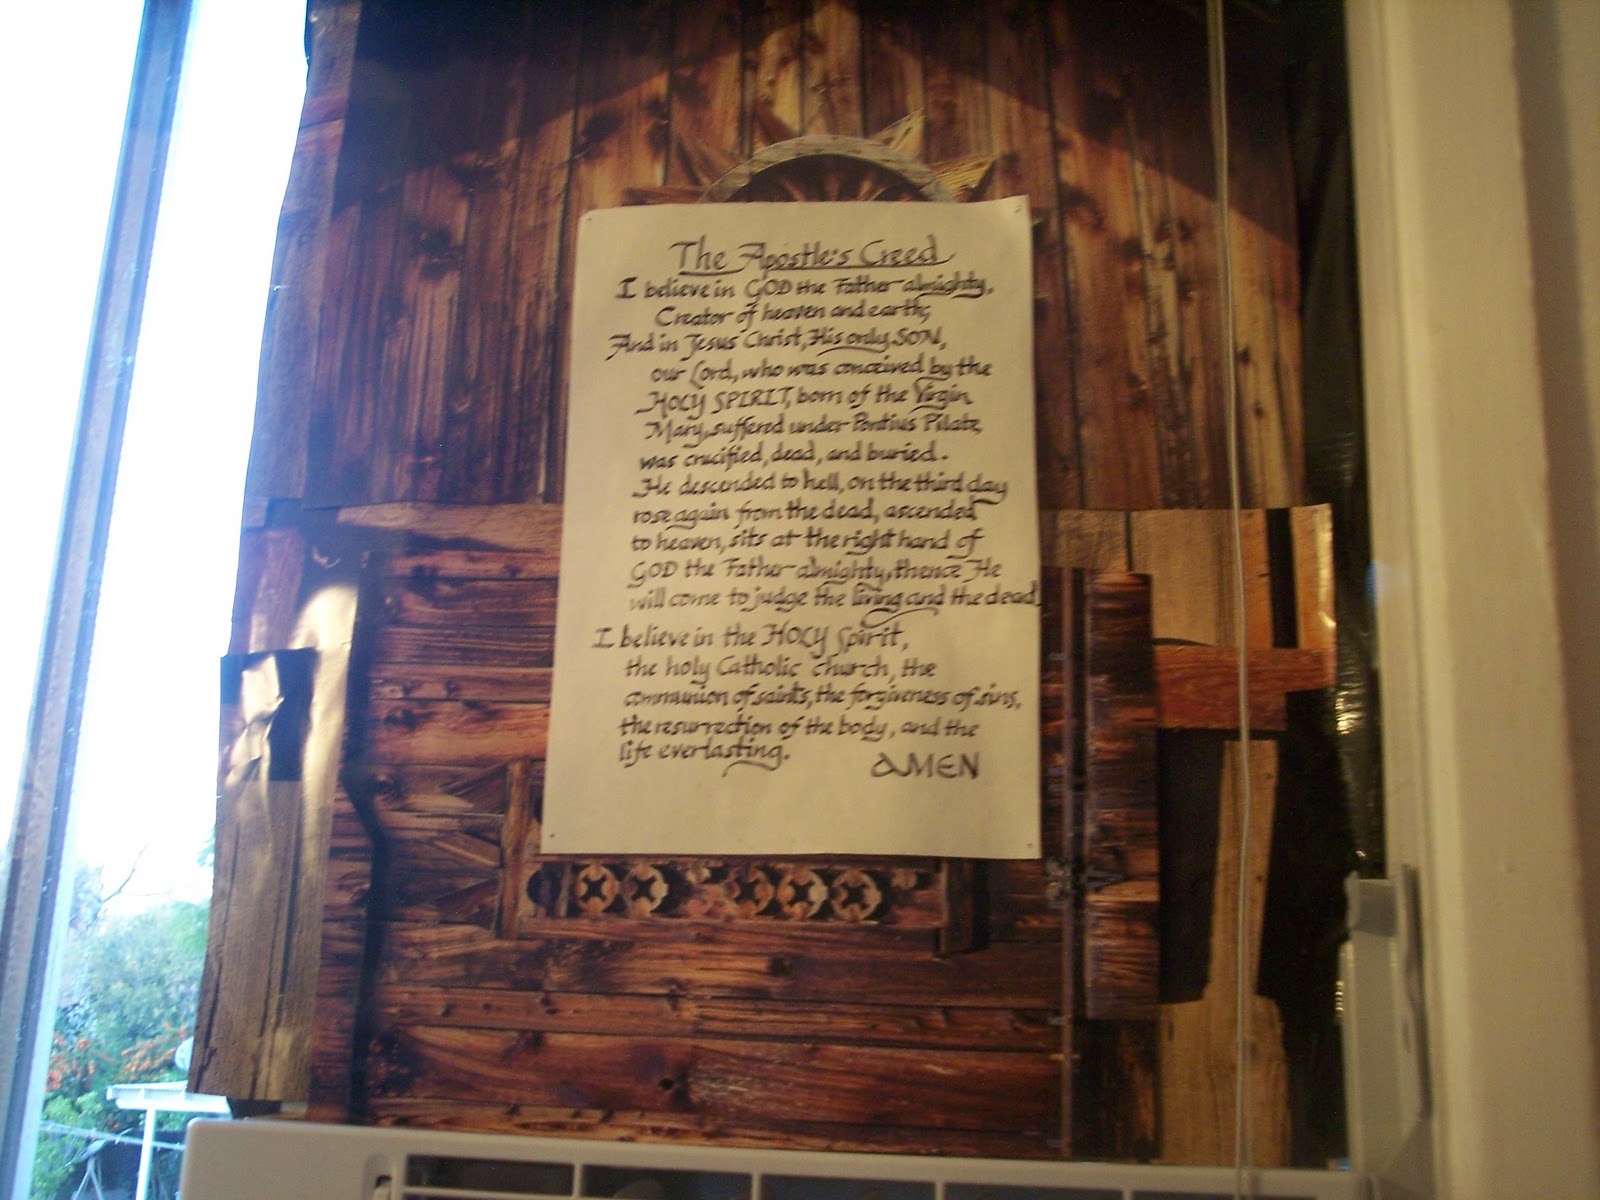 The Apostle's Creed
I believe in GOD the Father almighty,
Creator of heaven and earth;
And in Jesus Christ, His only SON,
our Lord, who was conceived by the
HOLY SPIRIT, born of the Virgin
Mary, suffered under Pontius Pilate,
was crucified, dead, and buried.
He descended to hell, on the third day
rose again from the dead, ascended
to heaven, sits at the right hand of
GOD the Father almighty, thence He
will come to judge the living and the dead.
I believe in the HOLY Spirit,
the holy Catholic church, the
communion of saints, the forgiveness of sins,
the resurrection of the body, and the
life everlasting. AMEN